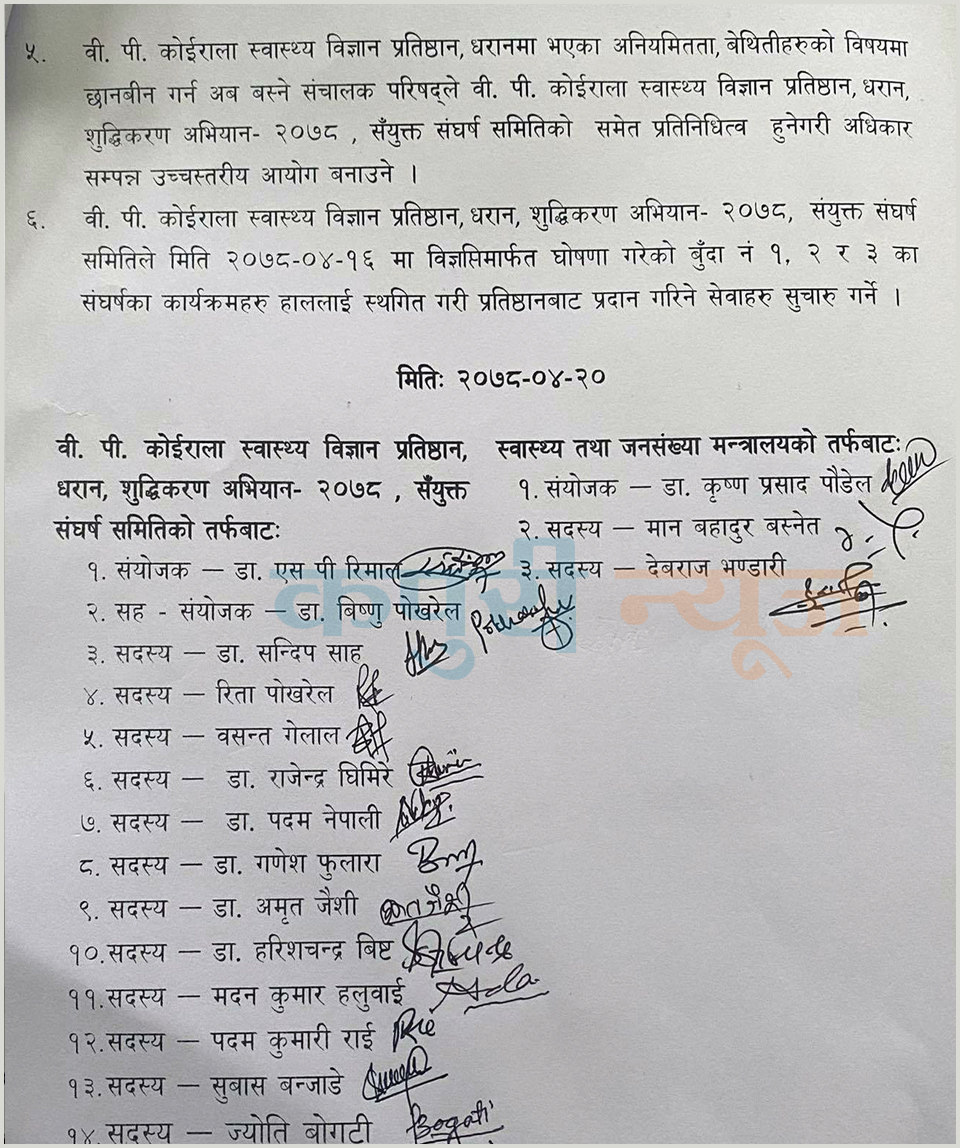 ५. वी. पी. कोईराला स्वास्थ्य विज्ञान प्रतिष्ठान, धरानमा भएका अनियमितता, बेथितीहरुको विषयमा
छानबीन गर्न अब बस्ने संचालक परिषद्ले वी. पी. कोईराला स्वास्थ्य विज्ञान प्रतिष्ठान, धरान,
शुद्धिकरण अभियान- २०७८ , सँयुक्त संघर्ष समितिको समेत प्रतिनिधित्व हुनेगरी अधिकार
सम्पन्न उच्चस्तरीय आयोग बनाउने ।
६. वी. पी. कोईराला स्वास्थ्य विज्ञान प्रतिष्ठान, धरान, शुद्धिकरण अभियान- २०७८, संयुक्त संघर्ष
समितिले मिति २०७८-०४-१६ मा विज्ञप्तिमार्फत घोषणा गरेको बुँदा नं १, २ र ३ का
संघर्षका कार्यक्रमहरु हाललाई स्थगित गरी प्रतिष्ठानबाट प्रदान गरिने सेवाहरु सुचारु गर्ने ।
मितिः २०७८-०४-२०
वी. पी. कोईराला स्वास्थ्य विज्ञान प्रतिष्ठान,
धरान, शुद्धिकरण अभियान- २०७८ , सँयुक्त
संघर्ष समितिको तर्फबाटः
१. संयोजक — डा. एस पी रिमाल
२. सह - संयोजक — डा. बिष्णु पोखरेल
३. सदस्य — डा. सन्दिप साह
४. सदस्य — रिता पोखरेल
५. सदस्य — वसन्त गेलाल
६. सदस्य — डा. राजेन्द्र घिमिरे
७. सदस्य — डा. पदम नेपाली
८. सदस्य — डा. गणेश फुलारा
९. सदस्य — डा. अमृत जैशी
१०.सदस्य — डा. हरिशचन्द्र बिष्ट
११.सदस्य — मदन कुमार हलुवाई
१२.सदस्य — पदम कुमारी राई
१३.सदस्य — सुबास बन्जाडे
१४.सदस्य — ज्योति बोगटी
Bogati
स्वास्थ्य तथा जनसंख्या मन्त्रालयको तर्फबाटः
१. संयोजक — डा. कृष्ण प्रसाद पौडेल
२. सदस्य — मान बहादुर बस्नेत
३. सदस्य — देबराज भण्डारी
न्यूज